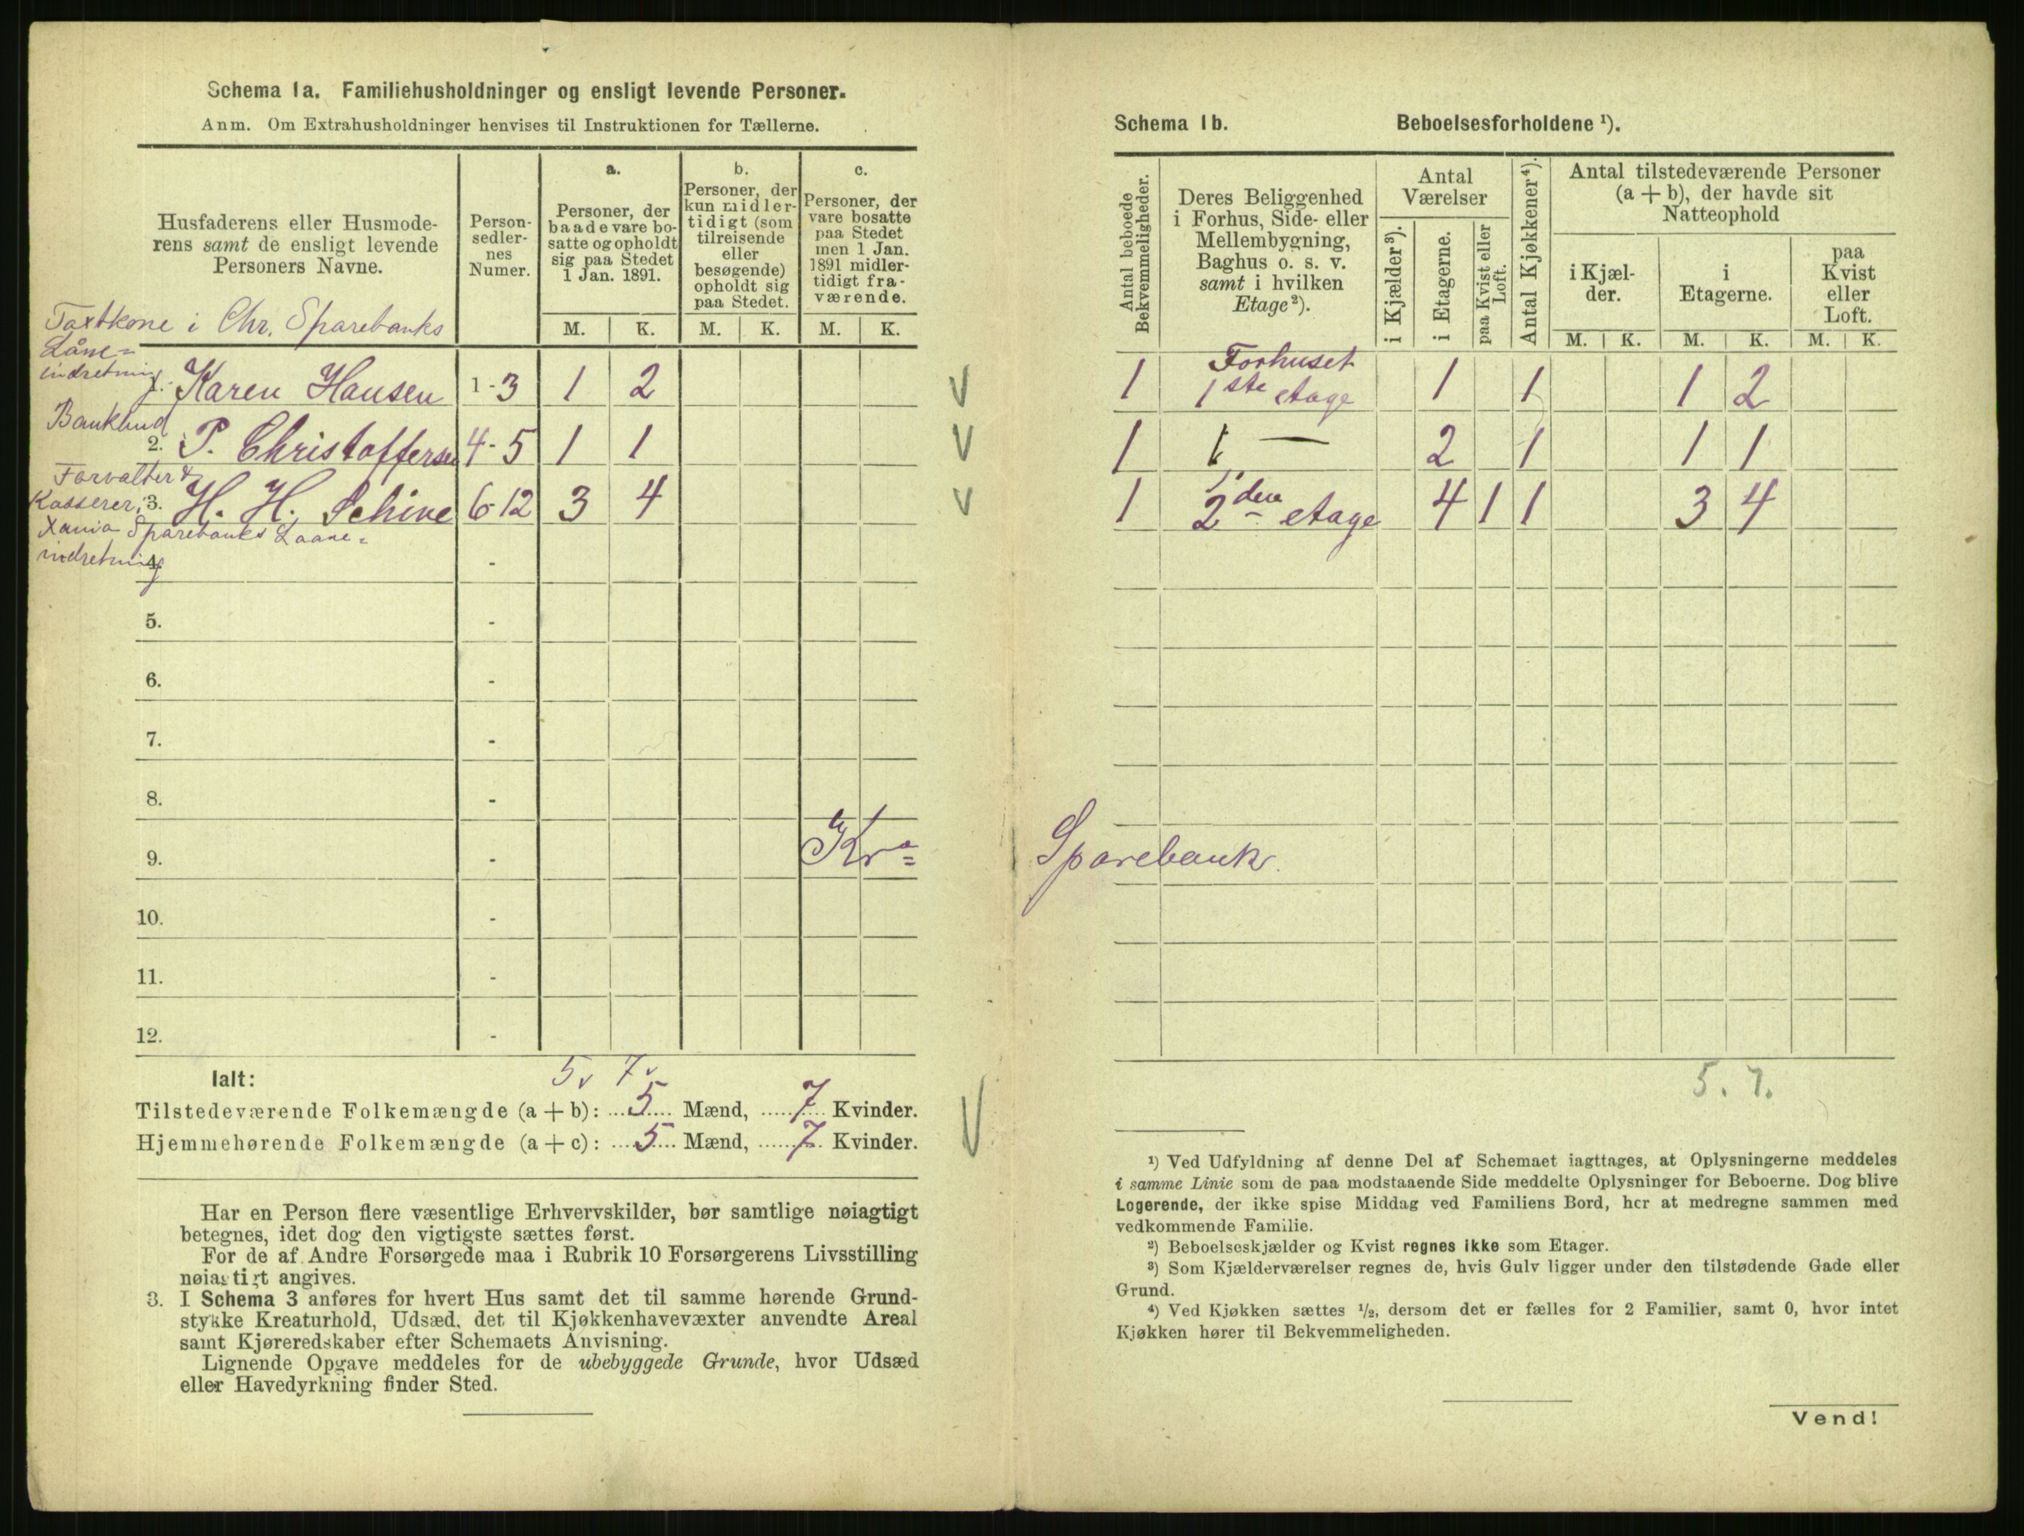 Schema 1a. Familiehusholdninger og ensligt levende Personer.
Anm. Om Extrahusholdninger henvises til Instruktionen for Tællerne.
Husfaderens eller Husmode-
rens samt de ensligt levende
Personers Navne.
Person-
sedler-
nes
Numer.
a.
Personer, der
baade vare bo-
satte og opholdt
sig paa Stedet
1 Jan. 1891.
b.
Personer, der
kun midler-
tidigt (som
tilreisende
eller
besøgende)
opholdt sig
paa Stedet.
c.
Personer, der
vare bosatte
paa Stedet
men 1 Jan.
1891 midler-
tidigt fra-
værende.
M. K. M. K. M. K.
Taxtkone i Chr. Sparebanks
Låne=
indretning
1. Karen Hansen 1-3 1 2
Bankbud
2. P. Christoffersen 4-5 1 1
Forvalter &
Kasserer,
3. H. H. Schive 6-12 3 4
Xania Sparebanks Laane=
indretning
4. -
5. -
6. -
7. -
8. -
9. - Kra=
10. -
11. -
12. -
5 7
Ialt:
Tilstedeværende Folkemængde (a + b): 5 Mænd, 7 Kvinder.
Hjemmehørende Folkemængde (a + c): 5 Mænd, 7 Kvinder.
Har en Person flere væsentlige Erhvervskilder, bør samtlige nøiagtigt
betegnes, idet dog den vigtigste sættes først.
For de af Andre Forsørgede maa i Rubrik 10 Forsørgerens Livsstilling
nøiagtigt angives.
3. I Schema 3 anføres for hvert Hus samt det til samme hørende Grund-
stykke Kreaturhold, Udsæd, det til Kjøkkenhavevæxter anvendte Areal
samt Kjøreredskaber efter Schemaets Anvisning.
Lignende Opgave meddeles for de ubebyggede Grunde, hvor Udsæd
eller Havedyrkning finder Sted.
Schema 1b. Beboelsesforholdene ¹).
Antal beboede
Bekvemmeligheder.
Deres Beliggenhed
i Forhus, Side- eller
Mellembygning,
Baghus o. s. v.
samt i hvilken
Etage²).
Antal
Værelser
i Kjælder³).
i Etagerne.
paa Kvist eller
Loft.
Antal Kjøkkener⁴).
Antal tilstedeværende Personer
(a + b), der havde sit
Natteophold
i Kjæl-
der.
i
Etagerne.
paa
Kvist
eller
Loft.
M. K. M. K. M. K.
1 Forhuset
1ste etage 1 1 1 2
1 1 — 2 1 1 1
1 2den etage 4 1 1 3 4
Sparebank.
5. 7.
¹) Ved Udfyldning af denne Del af Schemaet iagttages, at Oplysningerne meddeles
i samme Linie som de paa modstaaende Side meddelte Oplysninger for Beboerne. Dog blive
Logerende, der ikke spise Middag ved Familiens Bord, her at medregne sammen med
vedkommende Familie.
²) Beboelseskjælder og Kvist regnes ikke som Etager.
³) Som Kjælderværelser regnes de, hvis Gulv ligger under den tilstødende Gade eller
Grund.
⁴) Ved Kjøkken sættes ½, dersom det er fælles for 2 Familier, samt 0, hvor intet
Kjøkken hører til Bekvemmeligheden.
Vend!